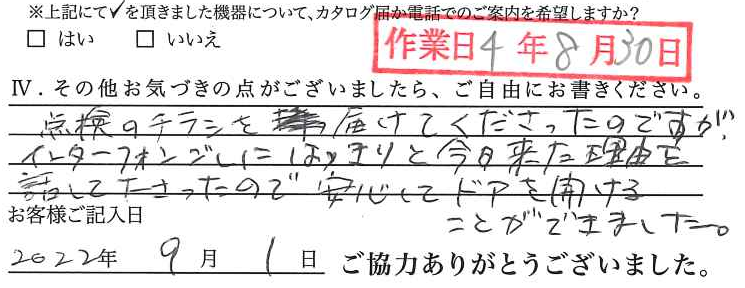 ※上記にて✓を頂きました機器について、カタログ届か電話でのご案内を希望しますか?
□ はい □ いいえ
作業日 4年8月30日
Ⅳ．その他お気づきの点がございましたら、ご自由にお書きください。
点検のチラシを 届けてくださったのですが、
インターフォンごしにはっきりと今日来た理由を
話して下さったので 安心して ドアを開ける
ことができました。
お客様ご記入日
2022年 9月 1日 ご協力ありがとうございました。